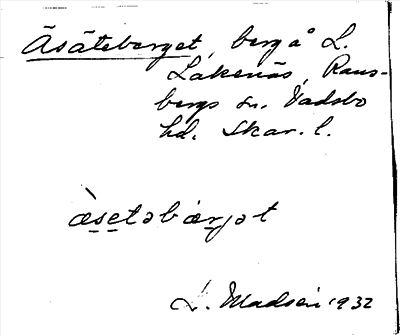 Äsäteberget, berg å L.
Lakenäs, Rans-
bergs sn. Vadsbo
hd. Skar. l.
æ̀setəbærjət
L. Madsén 1932